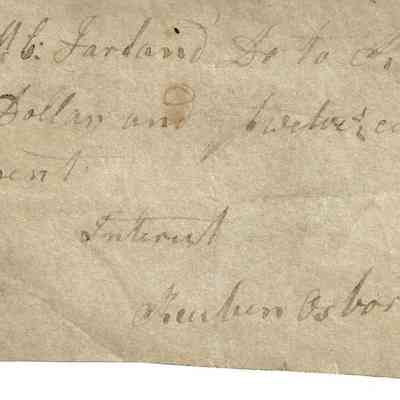 Farland Dr to
Dollar and twelve ½ ce
ent
Interest
Reuben Osbor